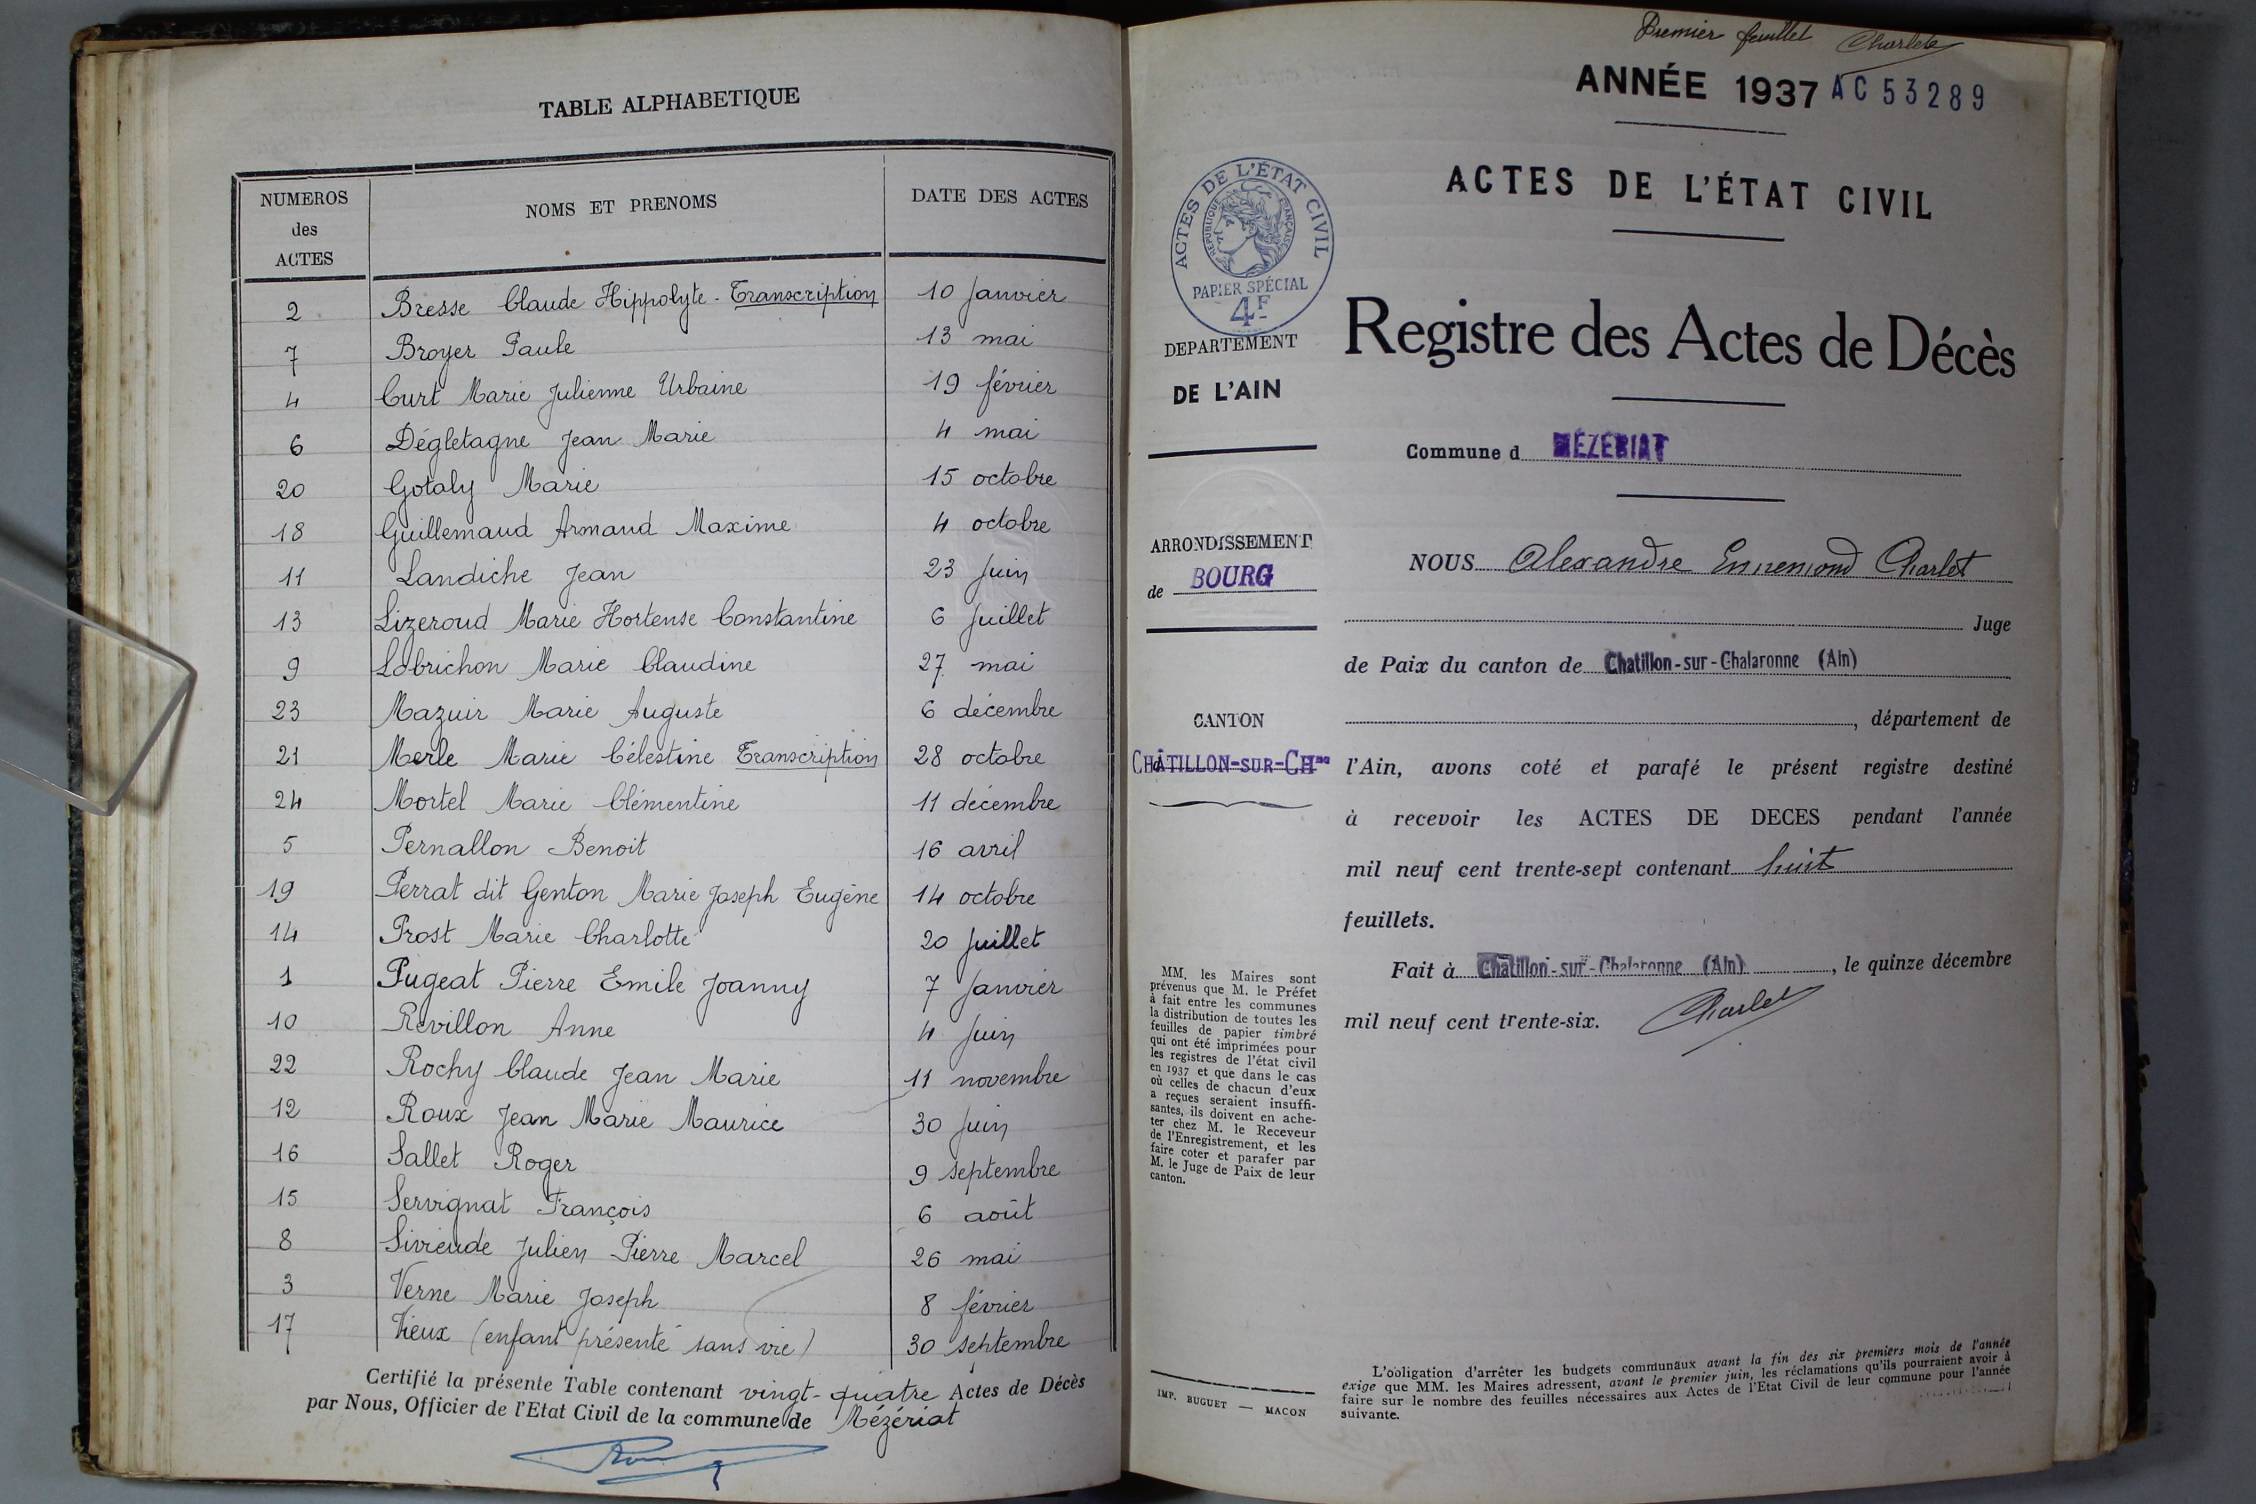 TABLE ALPHABETIQUE
NUMEROS des ACTES NOMS ET PRENOMS DATE DES ACTES
2 Bresse Claude Hippolyte - Transcription 10 Janvier
7 Broyer Paule 13 mai
4 Curt Marie Julienne Urbaine 19 février
6 Dégletagne Jean Marie 4 mai
20 Gotaly Marie 15 octobre
18 Guillemaud Armand Maxime 4 octobre
11 Landiche Jean 23 Juin
13 Lizeroud Marie Hortense Constantine 6 Juillet
9 Lobrichon Marie Claudine 27 mai
23 Mazuir Marie Auguste 6 décembre
21 Merle Marie Célestine Transcription 28 octobre
24 Mortel Marie Clémentine 11 décembre
5 Pernallon Benoit 16 avril
19 Perrat dit Genton Marie Joseph Eugène 14 octobre
14 Prost Marie Charlotte 20 Juillet
1 Pugeat Pierre Emile Joanny 7 Janvier
10 Revillon Anne 4 Juin
22 Rochy Claude Jean Marie 11 novembre
12 Roux Jean Marie Maurice 30 Juin
16 Sallet Roger 9 septembre
15 Servignat François 6 août
8 Sivieude Julien Pierre Marcel 26 mai
3 Verne Marie Joseph 8 février
17 Vieux (enfant présenté sans vie) 30 septembre
Certifié la présente Table contenant vingt-quatre Actes de Décès
par Nous, Officier de l'Etat Civil de la commune de Mézériat
Premier feuillet Charlet
ANNÉE 1937 AC 53289
ACTES DE L'ÉTAT CIVIL
ACTES DE L'ÉTAT CIVIL
RÉPUBLIQUE FRANÇAISE
PAPIER SPÉCIAL
4F
Registre des Actes de Décès
DEPARTEMENT
DE L'AIN
Commune d MÉZÉRIAT
ARRONDISSEMENT
de BOURG
NOUS Alexandre Ennemond Charlet
Juge
de Paix du canton de Chatillon-sur-Chalaronne (Ain)
CANTON
CHÂTILLON-SUR-CHne
, département de
l'Ain, avons coté et parafé le présent registre destiné
à recevoir les ACTES DE DECES pendant l'année
mil neuf cent trente-sept contenant huit
feuillets.
Fait à Chatillon-sur-Chalaronne (Ain), le quinze décembre
mil neuf cent trente-six. Charlet
MM. les Maires sont
prévenus que M. le Préfet
à fait entre les communes
la distribution de toutes les
feuilles de papier timbré
qui ont été imprimées pour
les registres de l'état civil
en 1937 et que dans le cas
où celles de chacun d'eux
a reçues seraient insuffi-
santes, ils doivent en ache-
ter chez M. le Receveur
de l'Enregistrement, et les
faire coter et parafer par
M. le Juge de Paix de leur
canton.
IMP. BUGUET — MACON
L'obligation d'arrêter les budgets communaux avant la fin des six premiers mois de l'année
exige que MM. les Maires adressent, avant le premier juin, les réclamations qu'ils pourraient avoir à
faire sur le nombre des feuilles nécessaires aux Actes de l'Etat Civil de leur commune pour l'année
suivante.